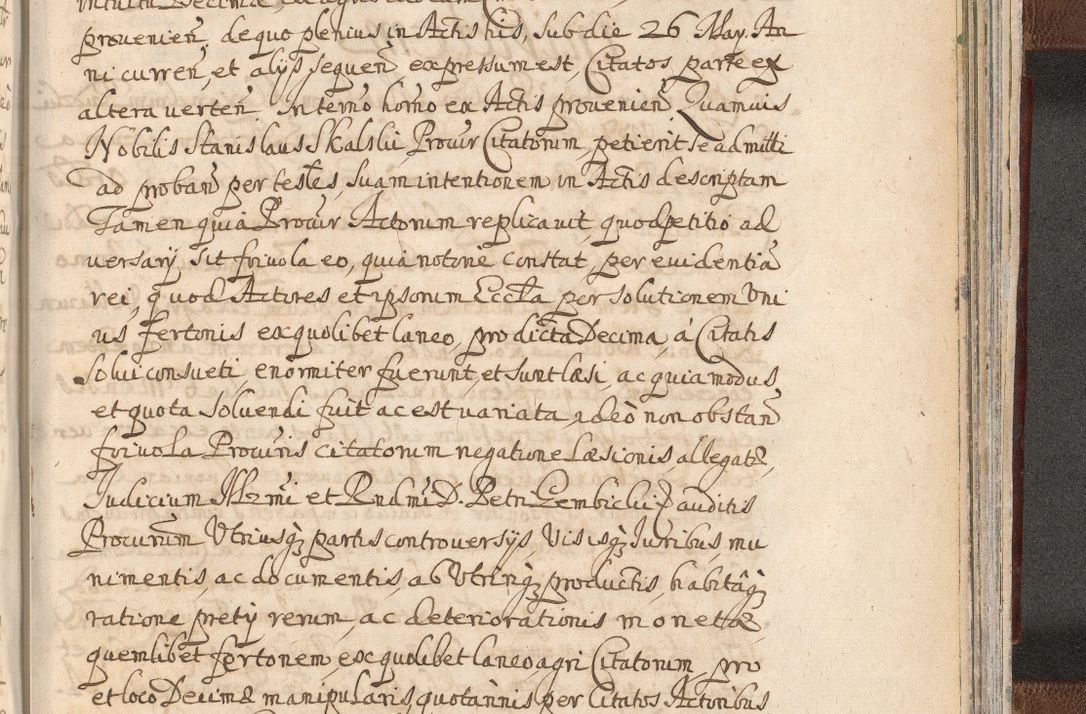 prouenien̄, de quo plenius in Actis his, sub die 26 May. An
ni curren̄, et alijs sequen̄ expressum est Citatos parte ex
altera verten̄. In termo hõrno ex Actis prouenien̄ Quamuis
Nobilis Stanislaus Skalski, Procur Citatorum, petierit se admitti
ad proban̄ per testes, suam intentionem in Actis descriptam
Tamen quia Procur Actorum replicauit, quod petitio ad
uersarij sit friuola eo, quia notorie constat, per euidentiā
rei, quod Actores et ipsorum Eccła per solutionem vni
us fertonis ex quolibet laneo, pro dicta Decima, á Citatis
solui consueti, enormiter fuerunt, et sunt læsi, ac quia modus
et quota soluendi fuit ac est uariata, ideò non obstan̄
friuola Procuris citatorum negatione Læsionis allegatæ,
Judicium Illrmi et Rndmi D. Petri Gembicki auditis
Procurum Vtriusq; partis controuersijs, Visisq; Juribus, mu
nimentis, ac documentis, ab Vtrinq; productis, habitâq;
ratione pretij rerum, ac deteriorationis monetæ,
quemlibet fertonem, ex quolibet laneo agri Citatorum pro
et loco Decimæ manipularis quotannis per Citatos Actoribus